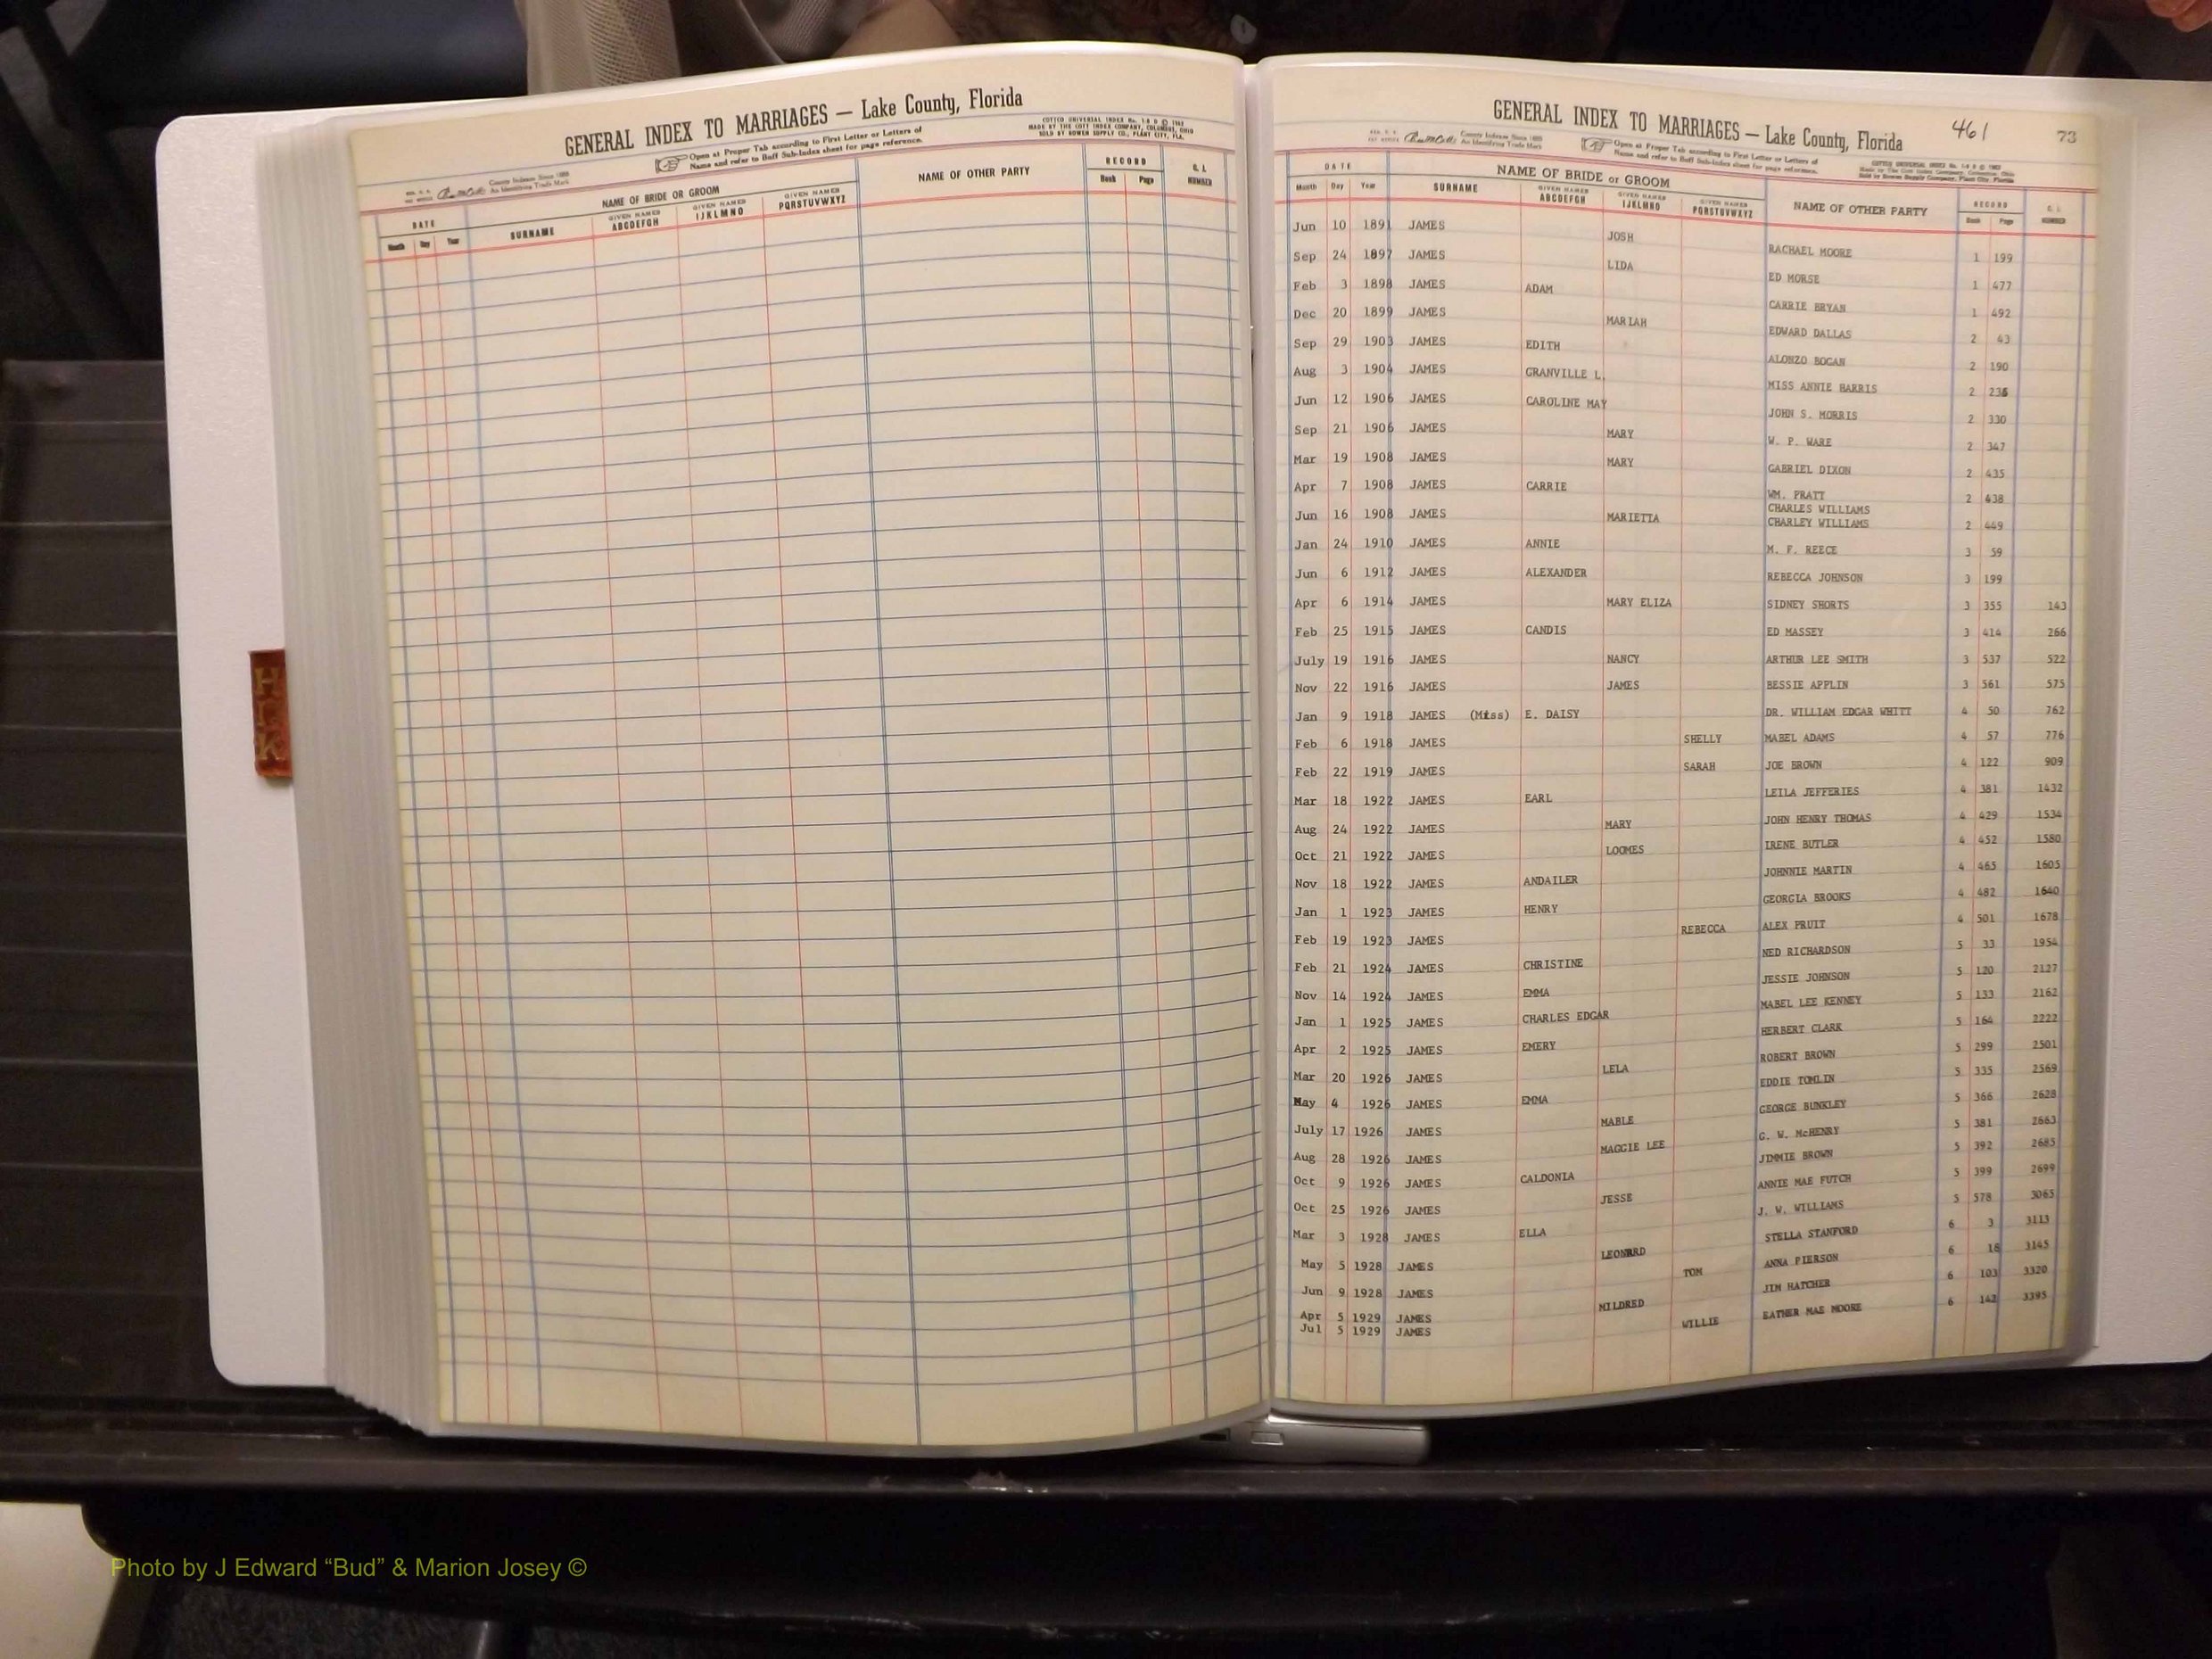 GENERAL INDEX TO MARRIAGES — Lake County, Florida
COTTCO UNIVERSAL INDEX
MADE BY THE COTT INDEX COMPANY, COLUMBUS, OHIO
SOLD BY BOWEN SUPPLY CO., PLANT CITY, FLA.
County Indexes Since 1888
An Identifying Trade Mark
Open at Proper Tab according to First Letter or Letters of
Name and refer to Buff Sub-Index sheet for page reference.
DATE NAME OF BRIDE OR GROOM NAME OF OTHER PARTY RECORD G. I. NUMBER
Month Day Year SURNAME GIVEN NAMES ABCDEFGH GIVEN NAMES IJKLMNO GIVEN NAMES PQRSTUVWXYZ Book Page
HIJK
GENERAL INDEX TO MARRIAGES — Lake County, Florida 461 73
County Indexes Since 1888
An Identifying Trade Mark
Open at Proper Tab according to First Letter or Letters of
Name and refer to Buff Sub-Index sheet for page reference.
Made by The Cott Index Company, Columbus, Ohio
Sold by Bowen Supply Company, Plant City, Florida
DATE NAME OF BRIDE or GROOM NAME OF OTHER PARTY RECORD G. I. NUMBER
Month Day Year SURNAME GIVEN NAMES ABCDEFGH GIVEN NAMES IJKLMNO GIVEN NAMES PQRSTUVWXYZ Book Page
Jun 10 1891 JAMES JOSH RACHAEL MOORE 1 199
Sep 24 1897 JAMES LIDA ED MORSE 1 477
Feb 3 1898 JAMES ADAM CARRIE BRYAN 1 492
Dec 20 1899 JAMES MARIAH EDWARD DALLAS 2 43
Sep 29 1903 JAMES EDITH ALONZO BOGAN 2 190
Aug 3 1904 JAMES GRANVILLE L. MISS ANNIE HARRIS 2
Jun 12 1906 JAMES CAROLINE MAY JOHN S. MORRIS 2 330
Sep 21 1906 JAMES MARY W. P. WARE 2 347
Mar 19 1908 JAMES MARY GABRIEL DIXON 2 435
Apr 7 1908 JAMES CARRIE WM. PRATT 2 438
CHARLES WILLIAMS
Jun 16 1908 JAMES MARIETTA CHARLEY WILLIAMS 2 449
Jan 24 1910 JAMES ANNIE M. F. REECE 3 59
Jun 6 1912 JAMES ALEXANDER REBECCA JOHNSON 3 199
Apr 6 1914 JAMES MARY ELIZA SIDNEY SHORTS 3 355 143
Feb 25 1915 JAMES CANDIS ED MASSEY 3 414 266
July 19 1916 JAMES NANCY ARTHUR LEE SMITH 3 537 522
Nov 22 1916 JAMES JAMES BESSIE APPLIN 3 561 575
Jan 9 1918 JAMES (Miss) E. DAISY DR. WILLIAM EDGAR WHITT 4 50 762
Feb 6 1918 JAMES SHELLY MABEL ADAMS 4 57 776
Feb 22 1919 JAMES SARAH JOE BROWN 4 122 909
Mar 18 1922 JAMES EARL LEILA JEFFERIES 4 381 1432
Aug 24 1922 JAMES MARY JOHN HENRY THOMAS 4 429 1534
Oct 21 1922 JAMES LOOMES IRENE BUTLER 4 452 1580
Nov 18 1922 JAMES ANDAILER JOHNNIE MARTIN 4 465 1605
Jan 1 1923 JAMES HENRY GEORGIA BROOKS 4 482 1640
Feb 19 1923 JAMES REBECCA ALEX PRUIT 4 501 1678
Feb 21 1924 JAMES CHRISTINE NED RICHARDSON 5 33 1954
Nov 14 1924 JAMES EMMA JESSIE JOHNSON 5 120 2127
Jan 1 1925 JAMES CHARLES EDGAR MABEL LEE KENNEY 5 133 2162
Apr 2 1925 JAMES EMERY HERBERT CLARK 5 164 2222
Mar 20 1926 JAMES LELA ROBERT BROWN 5 299 2501
May 4 1926 JAMES EMMA EDDIE TOMLIN 5 335 2569
July 17 1926 JAMES MABLE GEORGE BUNKLEY 5 366 2628
Aug 28 1926 JAMES MAGGIE LEE G. W. McHENRY 5 381 2663
Oct 9 1926 JAMES CALDONIA JIMMIE BROWN 5 392 2685
Oct 25 1926 JAMES JESSE ANNIE MAE FUTCH 5 399 2699
Mar 3 1928 JAMES ELLA J. W. WILLIAMS 5 578 3065
May 5 1928 JAMES LEONARD STELLA STANFORD 6 3 3113
Jun 9 1928 JAMES TOM ANNA PIERSON 6 18 3145
Apr 5 1929 JAMES MILDRED JIM HATCHER 6 103 3320
Jul 5 1929 JAMES WILLIE EATHER MAE MOORE 6 142 3395
Photo by J Edward “Bud” & Marion Josey ©